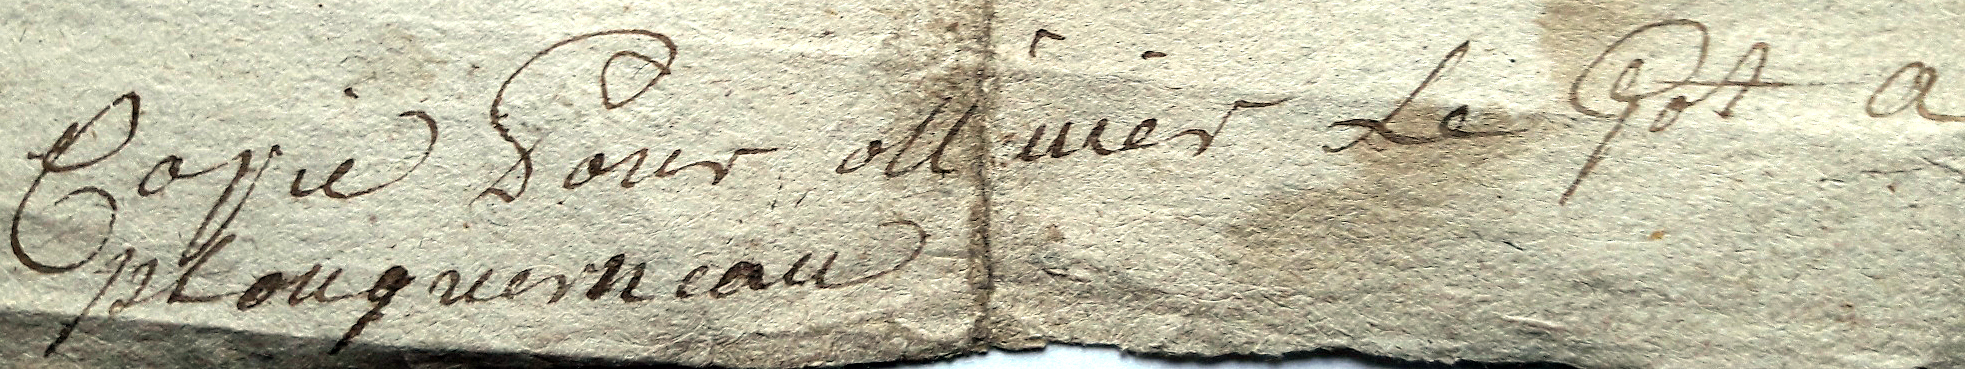 Copie Pour ollivier Le Got a
plouguerneau